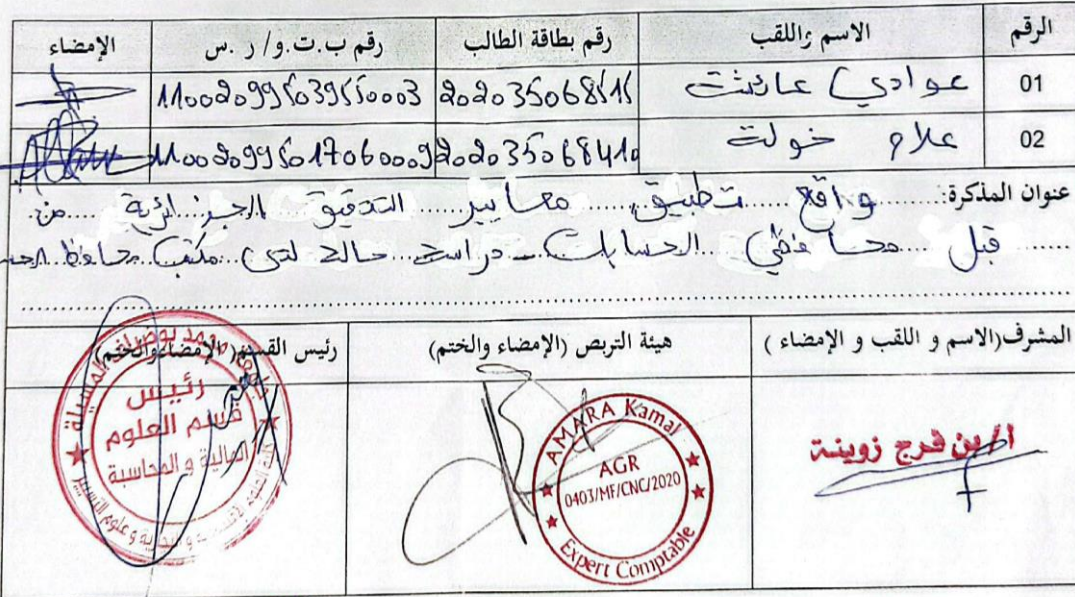 الرقم الاسم واللقب رقم بطاقة الطالب رقم ب.ت.و/ ر.س الإمضاء
01 عوادي عائشة 202035068515 110020995039550003
02 علام خولة 202035068410 110020995017060009
عنوان المذكرة: واقع تطبيق معايير التدقيق الجزائرية من
قبل محافظي الحسابات - دراسة حالة لدى مكتب محافظ
المشرف(الاسم و اللقب و الإمضاء ) هيئة التربص (الإمضاء والختم) رئيس القسم( الإمضاء والختم)
بن فرج زوينة
AMARA Kamal
AGR
0403/MF/CNC/2020
Expert Comptable
محمد بوضياف المسيلة
رئيس
قسم العلوم
المالية و المحاسبة
وعلوم التسيير